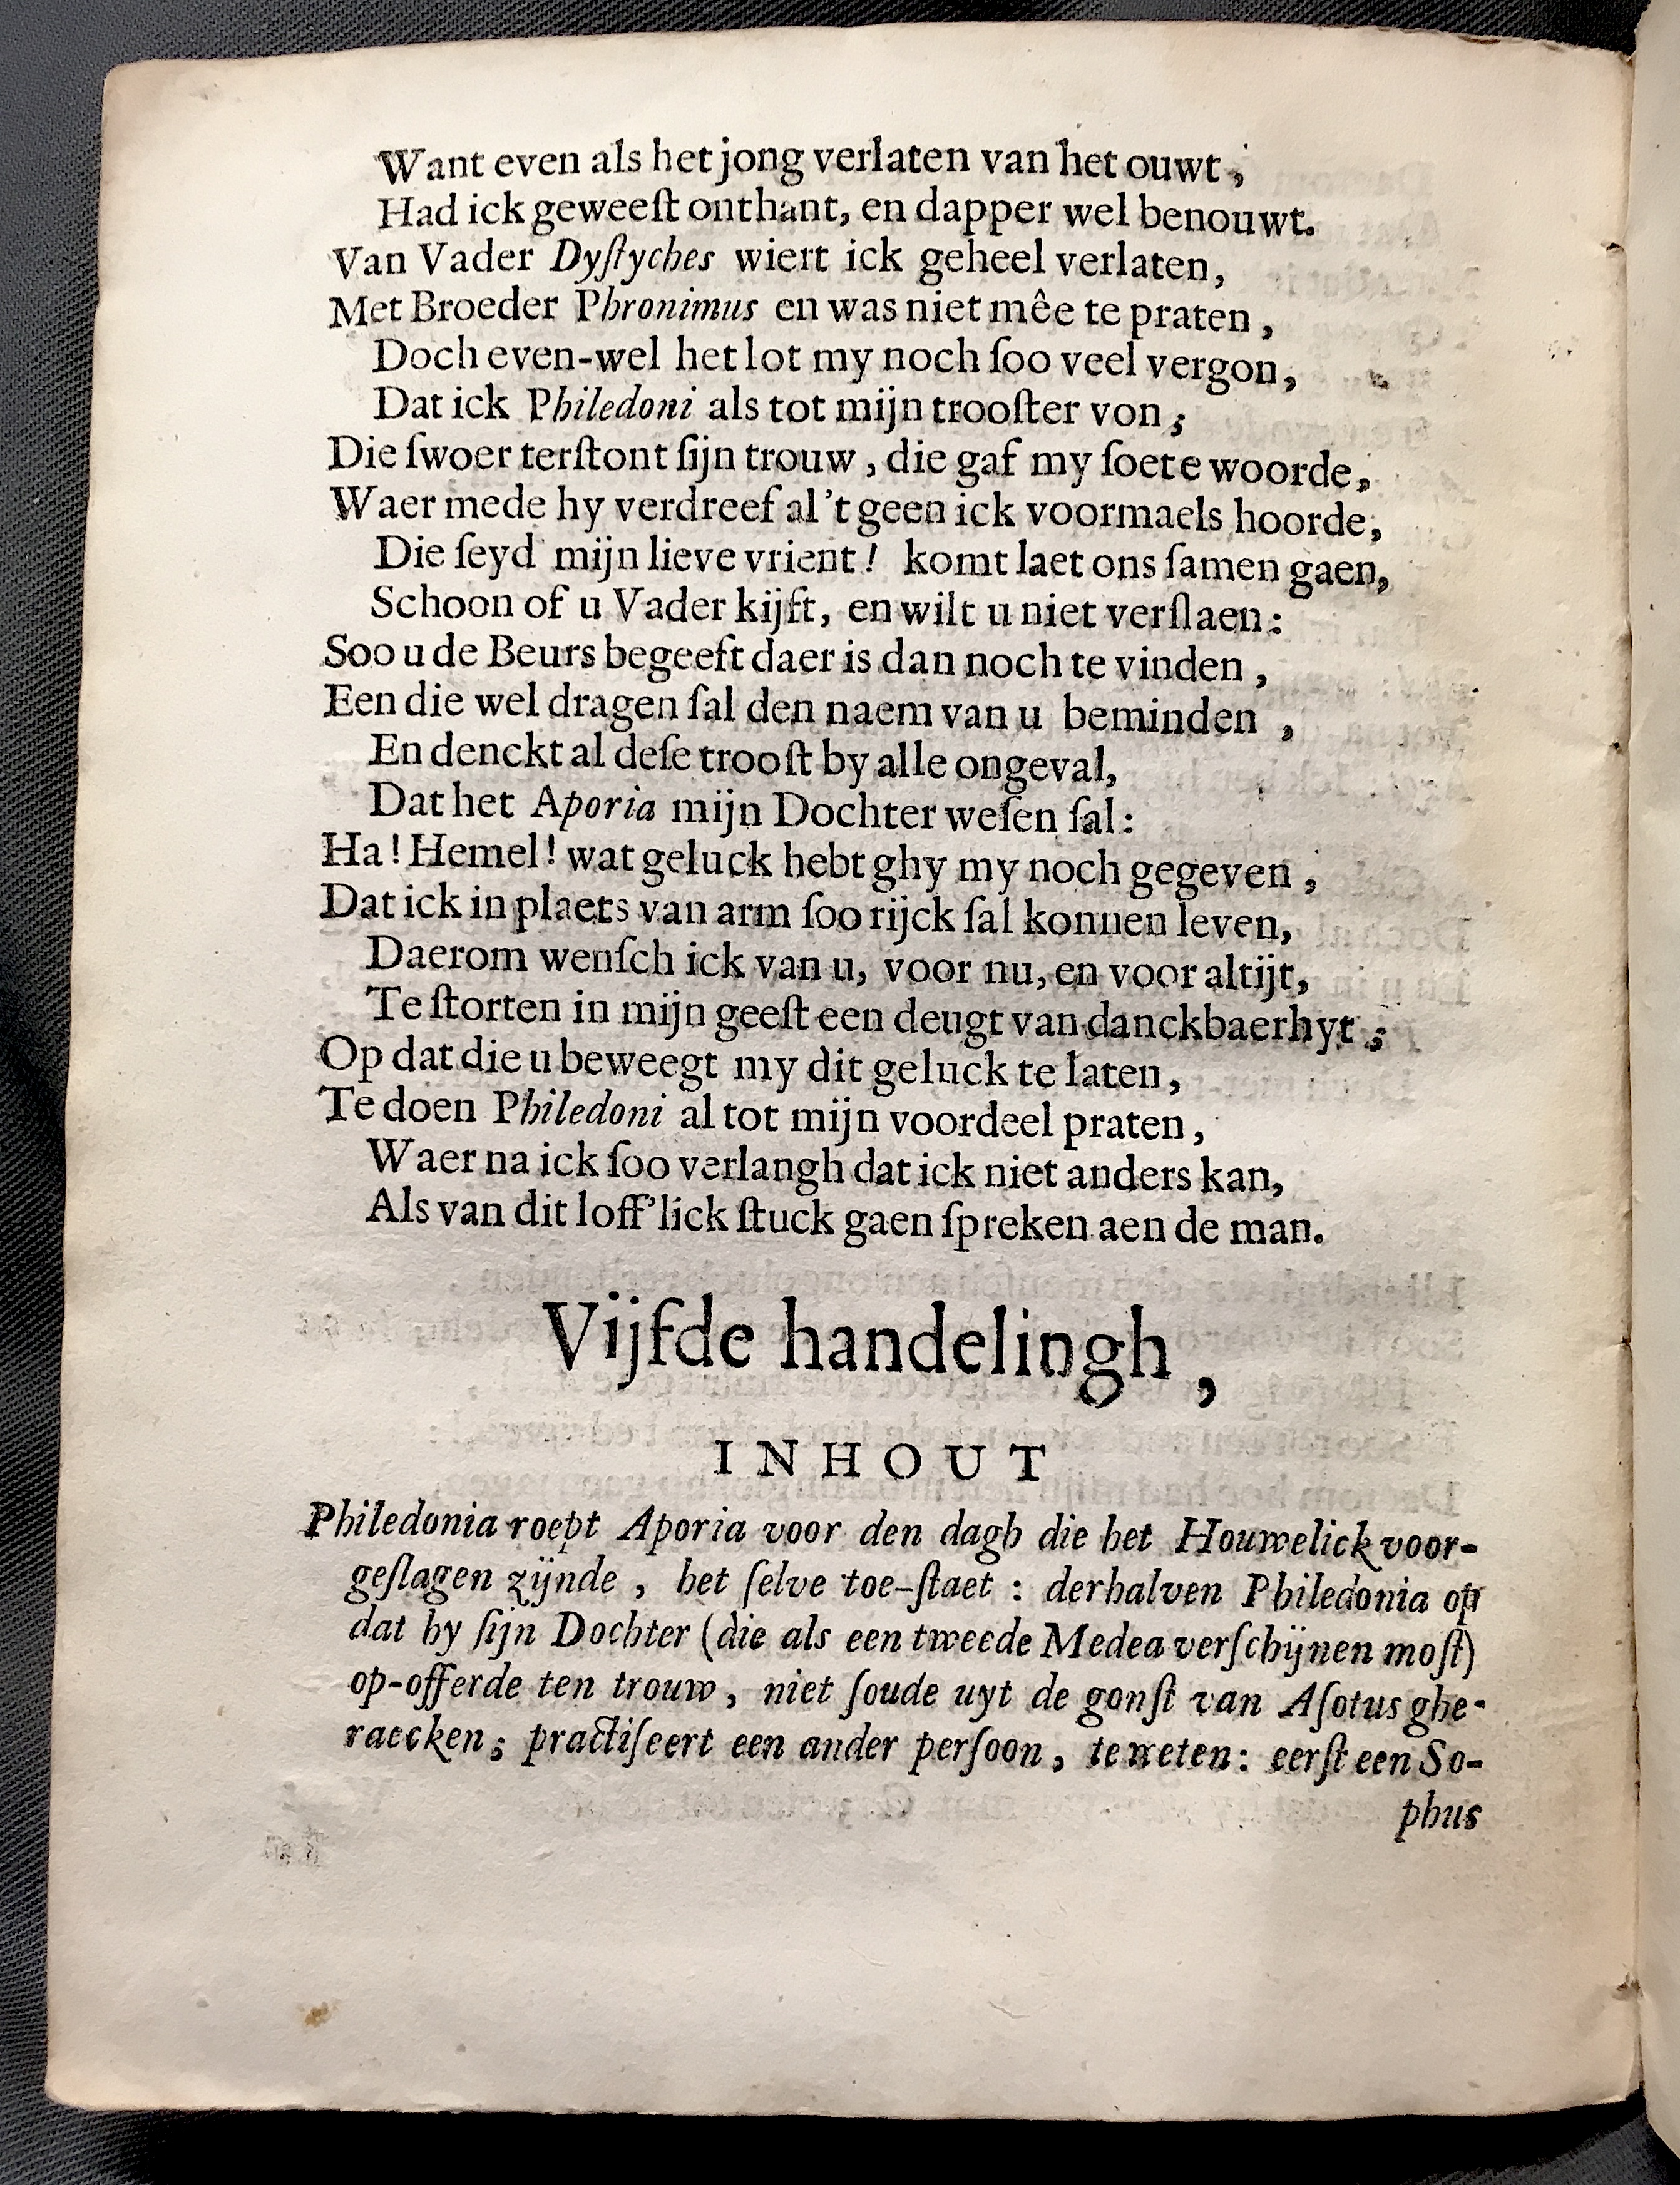 Want even als het jong verlaten van het ouwt,
Had ick geweeſt onthant, en dapper wel benouwt.
Van Vader Dyſtyches wiert ick geheel verlaten,
Met Broeder Phronimus en was niet mêe te praten,
Doch even-wel het lot my noch ſoo veel vergon,
Dat ick Philedoni als tot mijn trooſter von;
Die ſwoer terſtont ſijn trouw, die gaf my ſoete woorde,
Waer mede hy verdreef al 't geen ick voormaels hoorde,
Die ſeyd mijn lieve vrient! komt laet ons ſamen gaen,
Schoon of u Vader kijft, en wilt u niet verſlaen:
Soo u de Beurs begeeft daer is dan noch te vinden,
Een die wel dragen ſal den naem van u beminden,
En denckt al deſe trooſt by alle ongeval,
Dat het Aporia mijn Dochter weſen ſal:
Ha! Hemel! wat geluck hebt ghy my noch gegeven,
Dat ick in plaets van arm ſoo rijck ſal konnen leven,
Daerom wenſch ick van u, voor nu, en voor altijt,
Te ſtorten in mijn geeſt een deugt van danckbaerhyt;
Op dat die u beweegt my dit geluck te laten,
Te doen Philedoni al tot mijn voordeel praten,
Waer na ick ſoo verlangh dat ick niet anders kan,
Als van dit loff'lick ſtuck gaen ſpreken aen de man.
Vijfde handelingh,
INHOUT
Philedonia roept Aporia voor den dagh die het Houwelick voor-
geſlagen zijnde, het ſelve toe-ſtaet: derhalven Philedonia op
dat hy ſijn Dochter (die als een tweede Medea verſchijnen moſt)
op-offerde ten trouw, niet ſoude uyt de gonſt van Aſotus ghe-
raecken; practiſeert een ander perſoon, te weten: eerſt een So-
phus